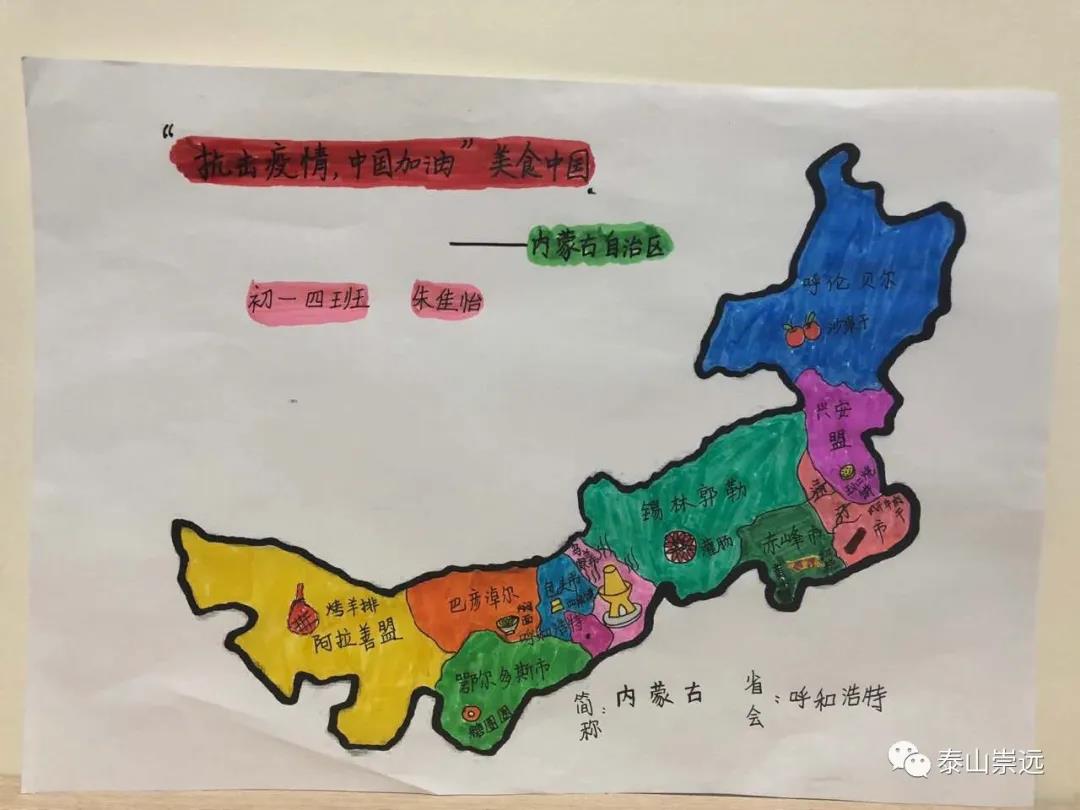 “抗击疫情，中国加油”美食中国
——内蒙古自治区
初一四班 朱佳怡
呼伦贝尔
沙果干
兴安
盟
锡林郭勒
灌肠
通
辽
市
牛肉干
赤峰市
包头市
巴彦淖尔
焖面
呼和浩特
烤羊排
阿拉善盟
鄂尔多斯市
糖圈圈
简称：内蒙古
省会：呼和浩特
泰山崇远